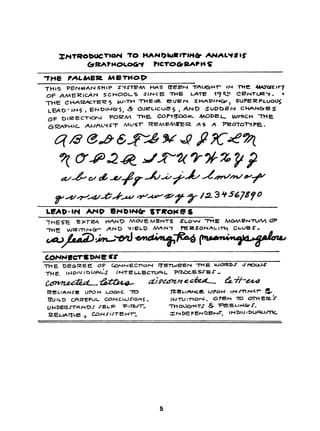 INTRODUCTION TO HANDWRITING ANALYSIS
GRAPHOLOGY PICTOGRAPHS
THE PALMER METHOD
THIS PENMANSHIP SYSTEM HAS BEEN TAUGHT IN THE MAJORITY
OF AMERICAN SCHOOLS SINCE THE LATE 19th CENTURY.
THE CHARACTERS WITH THEIR EVEN SHADING, SUPERFLUOUS
LEAD-INS, ENDINGS, & CURLICUES, AND SUDDEN CHANGES
OF DIRECTION FORM THE COPYBOOK MODEL WHICH THE
GRAPHIC ANALYST MUST REMEMBER AS A PROTOTYPE.
A B C D E F G H I J K L M
N O P Q R S T U V W X Y Z
a b c d e f g h i j k l m n o p
q r s t u v w x y z 1 2 3 4 5 6 7 8 9 0
LEAD-IN AND ENDING STROKES
THESE EXTRA HAND MOVEMENTS SLOW THE MOMENTUM OF
THE WRITING AND YIELD MANY PERSONALITY CLUES.
a lead-in or ending has meanings galore
CONNECTEDNESS
THE DEGREE OF CONNECTION BETWEEN THE WORDS SHOWS
THE INDIVIDUAL'S INTELLECTUAL PROCESSES.
connected letters disconnected letters
RELIANCE UPON LOGIC TO RELIANCE UPON INSTINCT &
BUILD CAREFUL CONCLUSIONS. INTUITION. OPEN TO OTHERS'
UNDERSTANDS SELF FIRST. THOUGHTS & FEELINGS.
RELIABLE, CONSISTENT. INDEPENDENT, INDIVIDUALISTIC
5